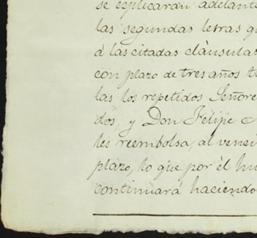 se esplicarán adelante
las segundas letras q
á las citadas cláusulas
con plazo de tres años
las los repetidos Señore
dos y Don Felipe
les reembolsa, al venci
plazo, lo que por él hu
continuará haciendo